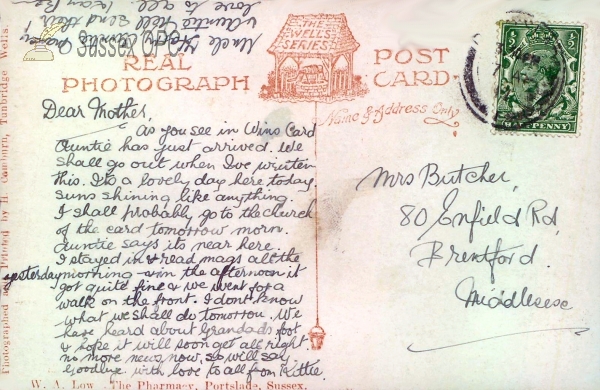 Uncle
& Auntie Nell send their
love to all.
Sussex OPC
REAL
PHOTOGRAPH
THE
WELLS
SERIES
POST
CARD.
Name & Address Only
½ ½
PENNY
Dear Mother,
As you see in Wins Card
Auntie has just arrived. We
shall go out when I've written
this. Its a lovely day here today.
suns shining like anything.
I shall probably go to the church
of the card tomorrow morn.
Auntie says its near here.
I stayed in & read mags all the
yesterday morning & in the afternoon it
got quite fine & we went for a
walk on the front. I don't know
what we shall do tomorrow. We
have heard about Grandads foot
& hope it will soon get all right
no more news now, so will say
Goodbye with love to all from Kittie
Mrs Butcher,
80 Enfield Rd,
Brentford.
Middlesex
Photographed and Printed by H. Camburn, Tunbridge Wells.
W. A. Low - The Pharmacy, Portslade, Sussex.